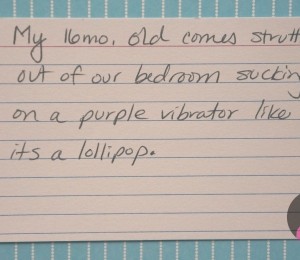 My 16mo. old comes strutt
out of our bedroom suckin
on a purple vibrator like
its a lollipop.